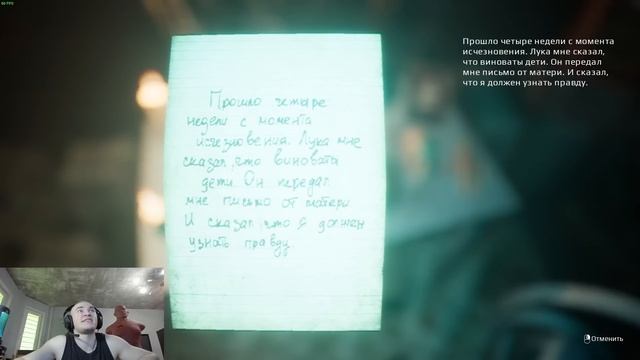 60 FPS
Прошло четыре недели с момента
исчезновения. Лука мне сказал,
что виноваты дети. Он передал
мне письмо от матери. И сказал,
что я должен узнать правду.
Прошло четыре
недели с момента
исчезновения. Лука мне
сказал, что виноваты
дети. Он передал
мне письмо от матери
И сказал, что я должен
узнать правду.
Отменить